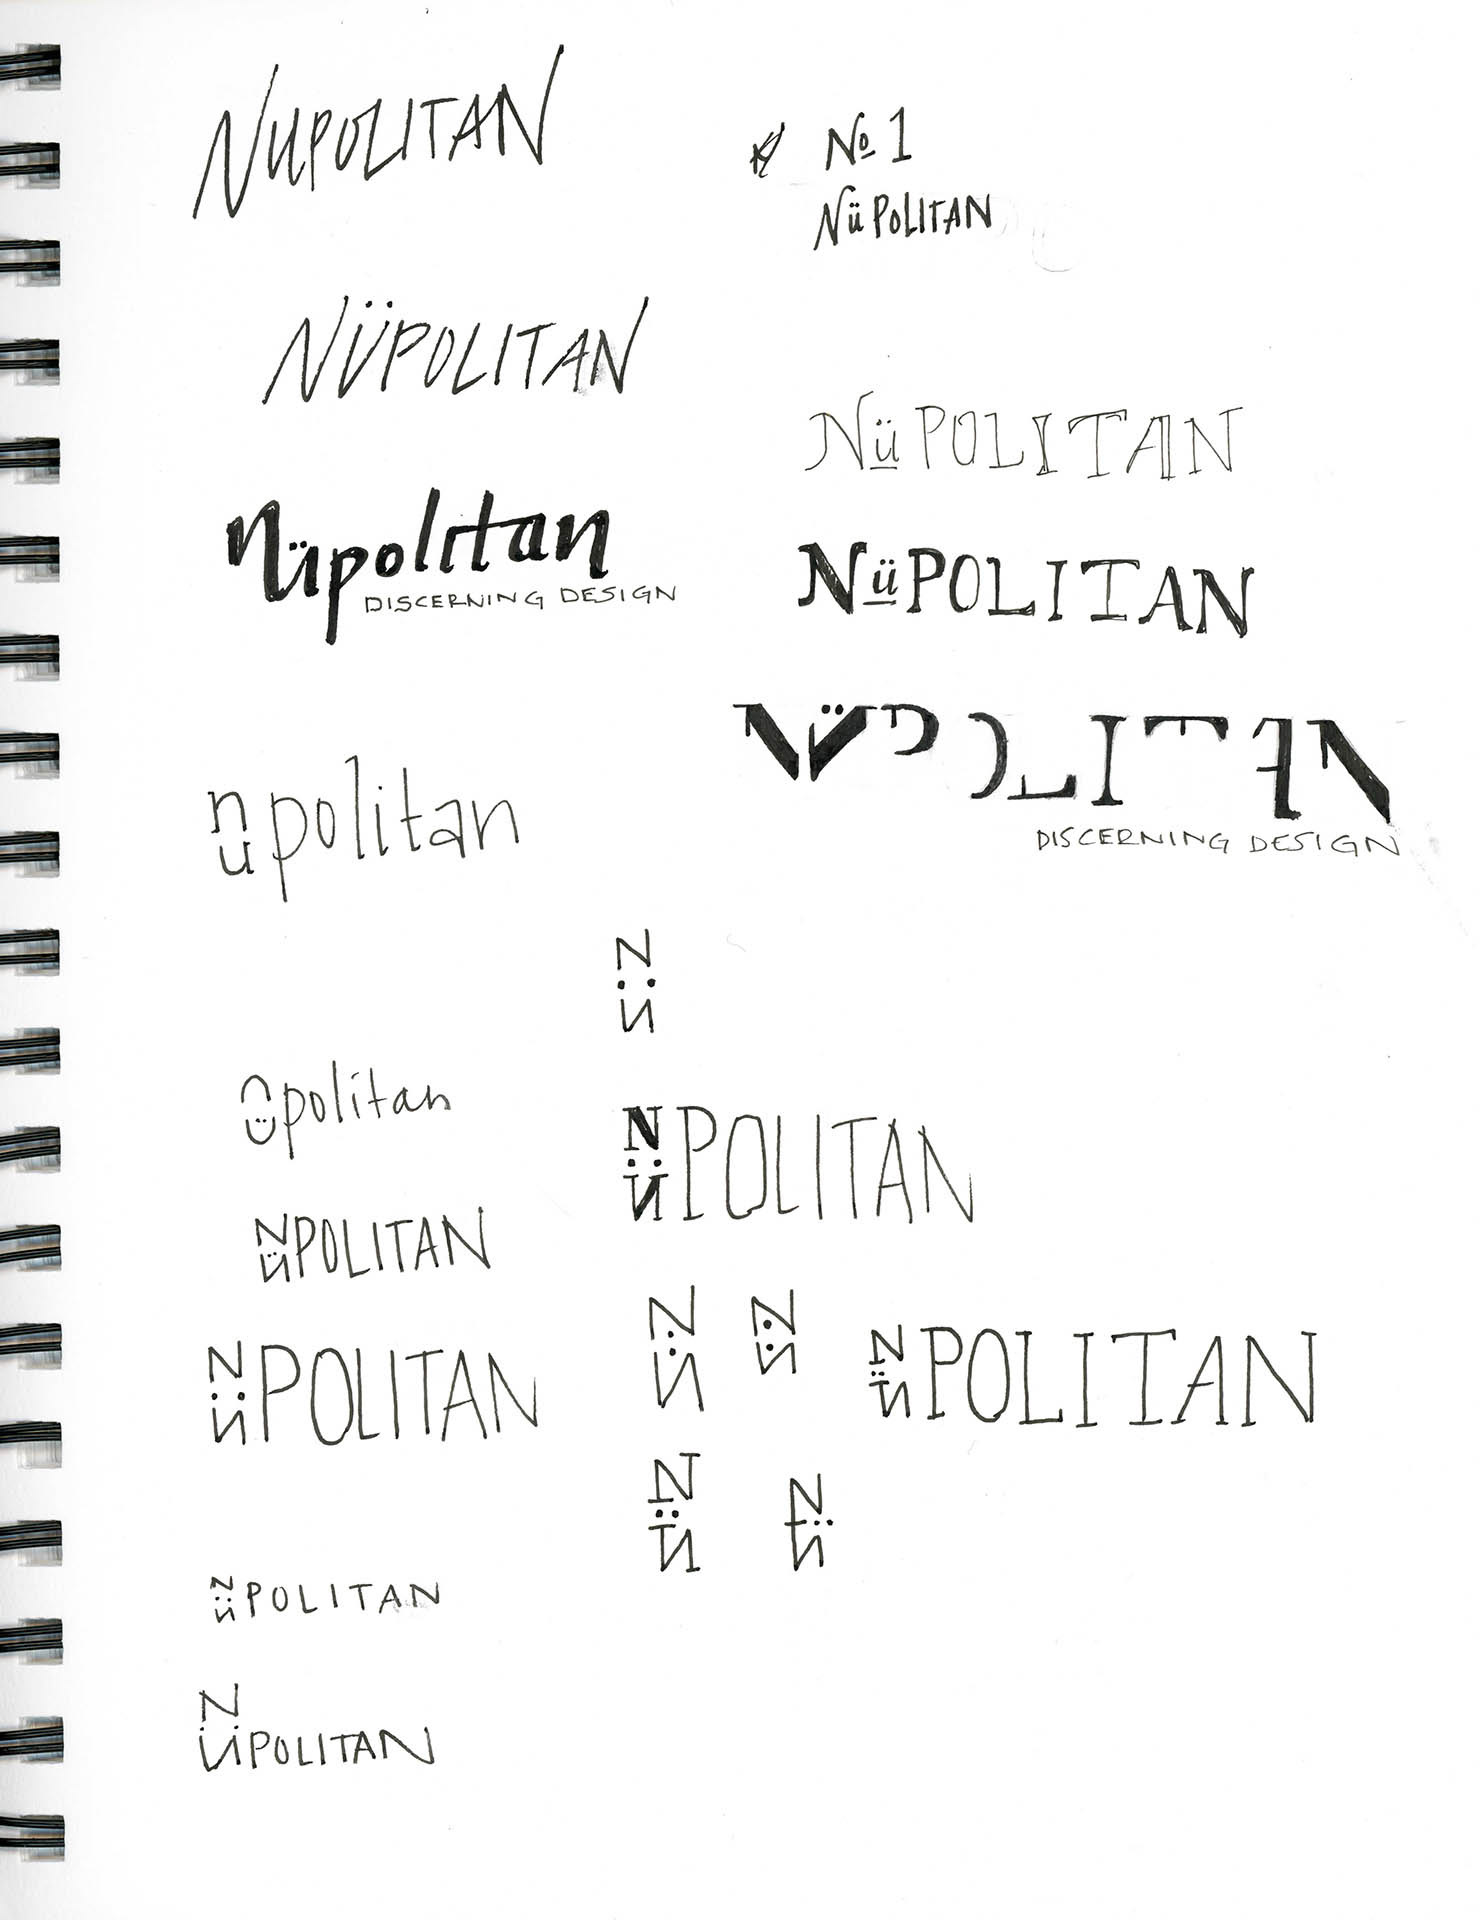 NUPOLITAN
No 1
NüPOLITAN
NÜPOLITAN
NüPOLITAN
nüpolitan
DISCERNING DESIGN
NüPOLITAN
NÜPOLITAN
DISCERNING DESIGN
nupolitan
N
N
nüpolitan
NÜPOLITAN
NÜPOLITAN
NÜPOLITAN
NÜPOLITAN
NÜPOLITAN
NÜPOLITAN